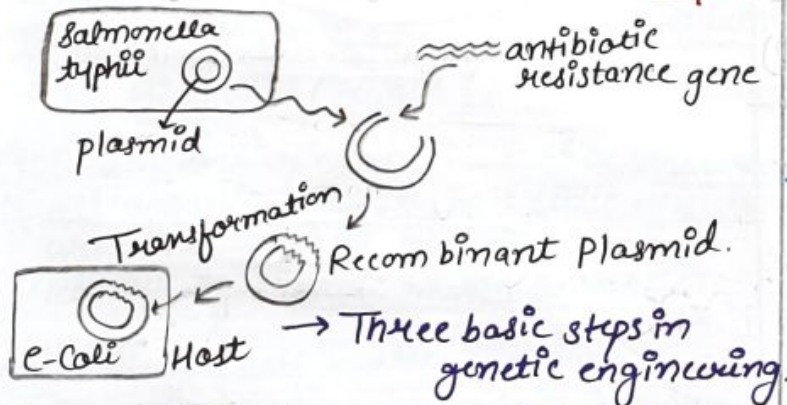 Salmonella
typhii
plasmid
antibiotic
resistance gene
Transformation
Recombinant Plasmid.
e-coli
Host
→ Three basic steps in
genetic engineering.